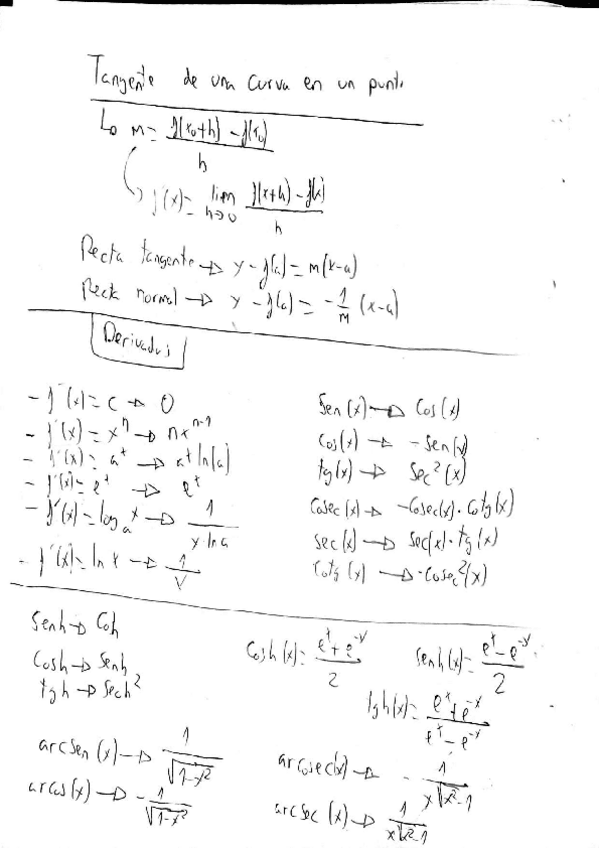 Tangente de una curva en un punto
↳ m = f(x₀+h) - f(x₀) / h
f'(x) = lim h→0 f(x+h) - f(x) / h
Recta tangente → y - f(a) = m(x-a)
Recta normal → y - f(a) = -1/m (x-a)
Derivadas
- f'(x) = c → 0
- f'(x) = xⁿ → nxⁿ⁻¹
- f'(x) = aˣ → aˣ ln(a)
- f'(x) = eˣ → eˣ
- f'(x) = logₐ x → 1 / x·ln a
- f'(x) = ln x → 1/x
Sen(x) → Cos(x)
Cos(x) → -Sen(x)
tg(x) → Sec²(x)
Cosec(x) → -Cosec(x)·Cotg(x)
Sec(x) → Sec(x)·tg(x)
Cotg(x) → -Cosec²(x)
Senh → Coh
Cosh → Senh
tgh → Sech²
Cosh(x) = eˣ + e⁻ˣ / 2
Senh(x) = eˣ - e⁻ˣ / 2
tgh(x) = eˣ + e⁻ˣ / eˣ - e⁻ˣ
arcsen(x) → 1 / √1-x²
arcos(x) → -1 / √1-x²
arcosec(x) → -1 / x√x²-1
arcsec(x) → 1 / x√x²-1